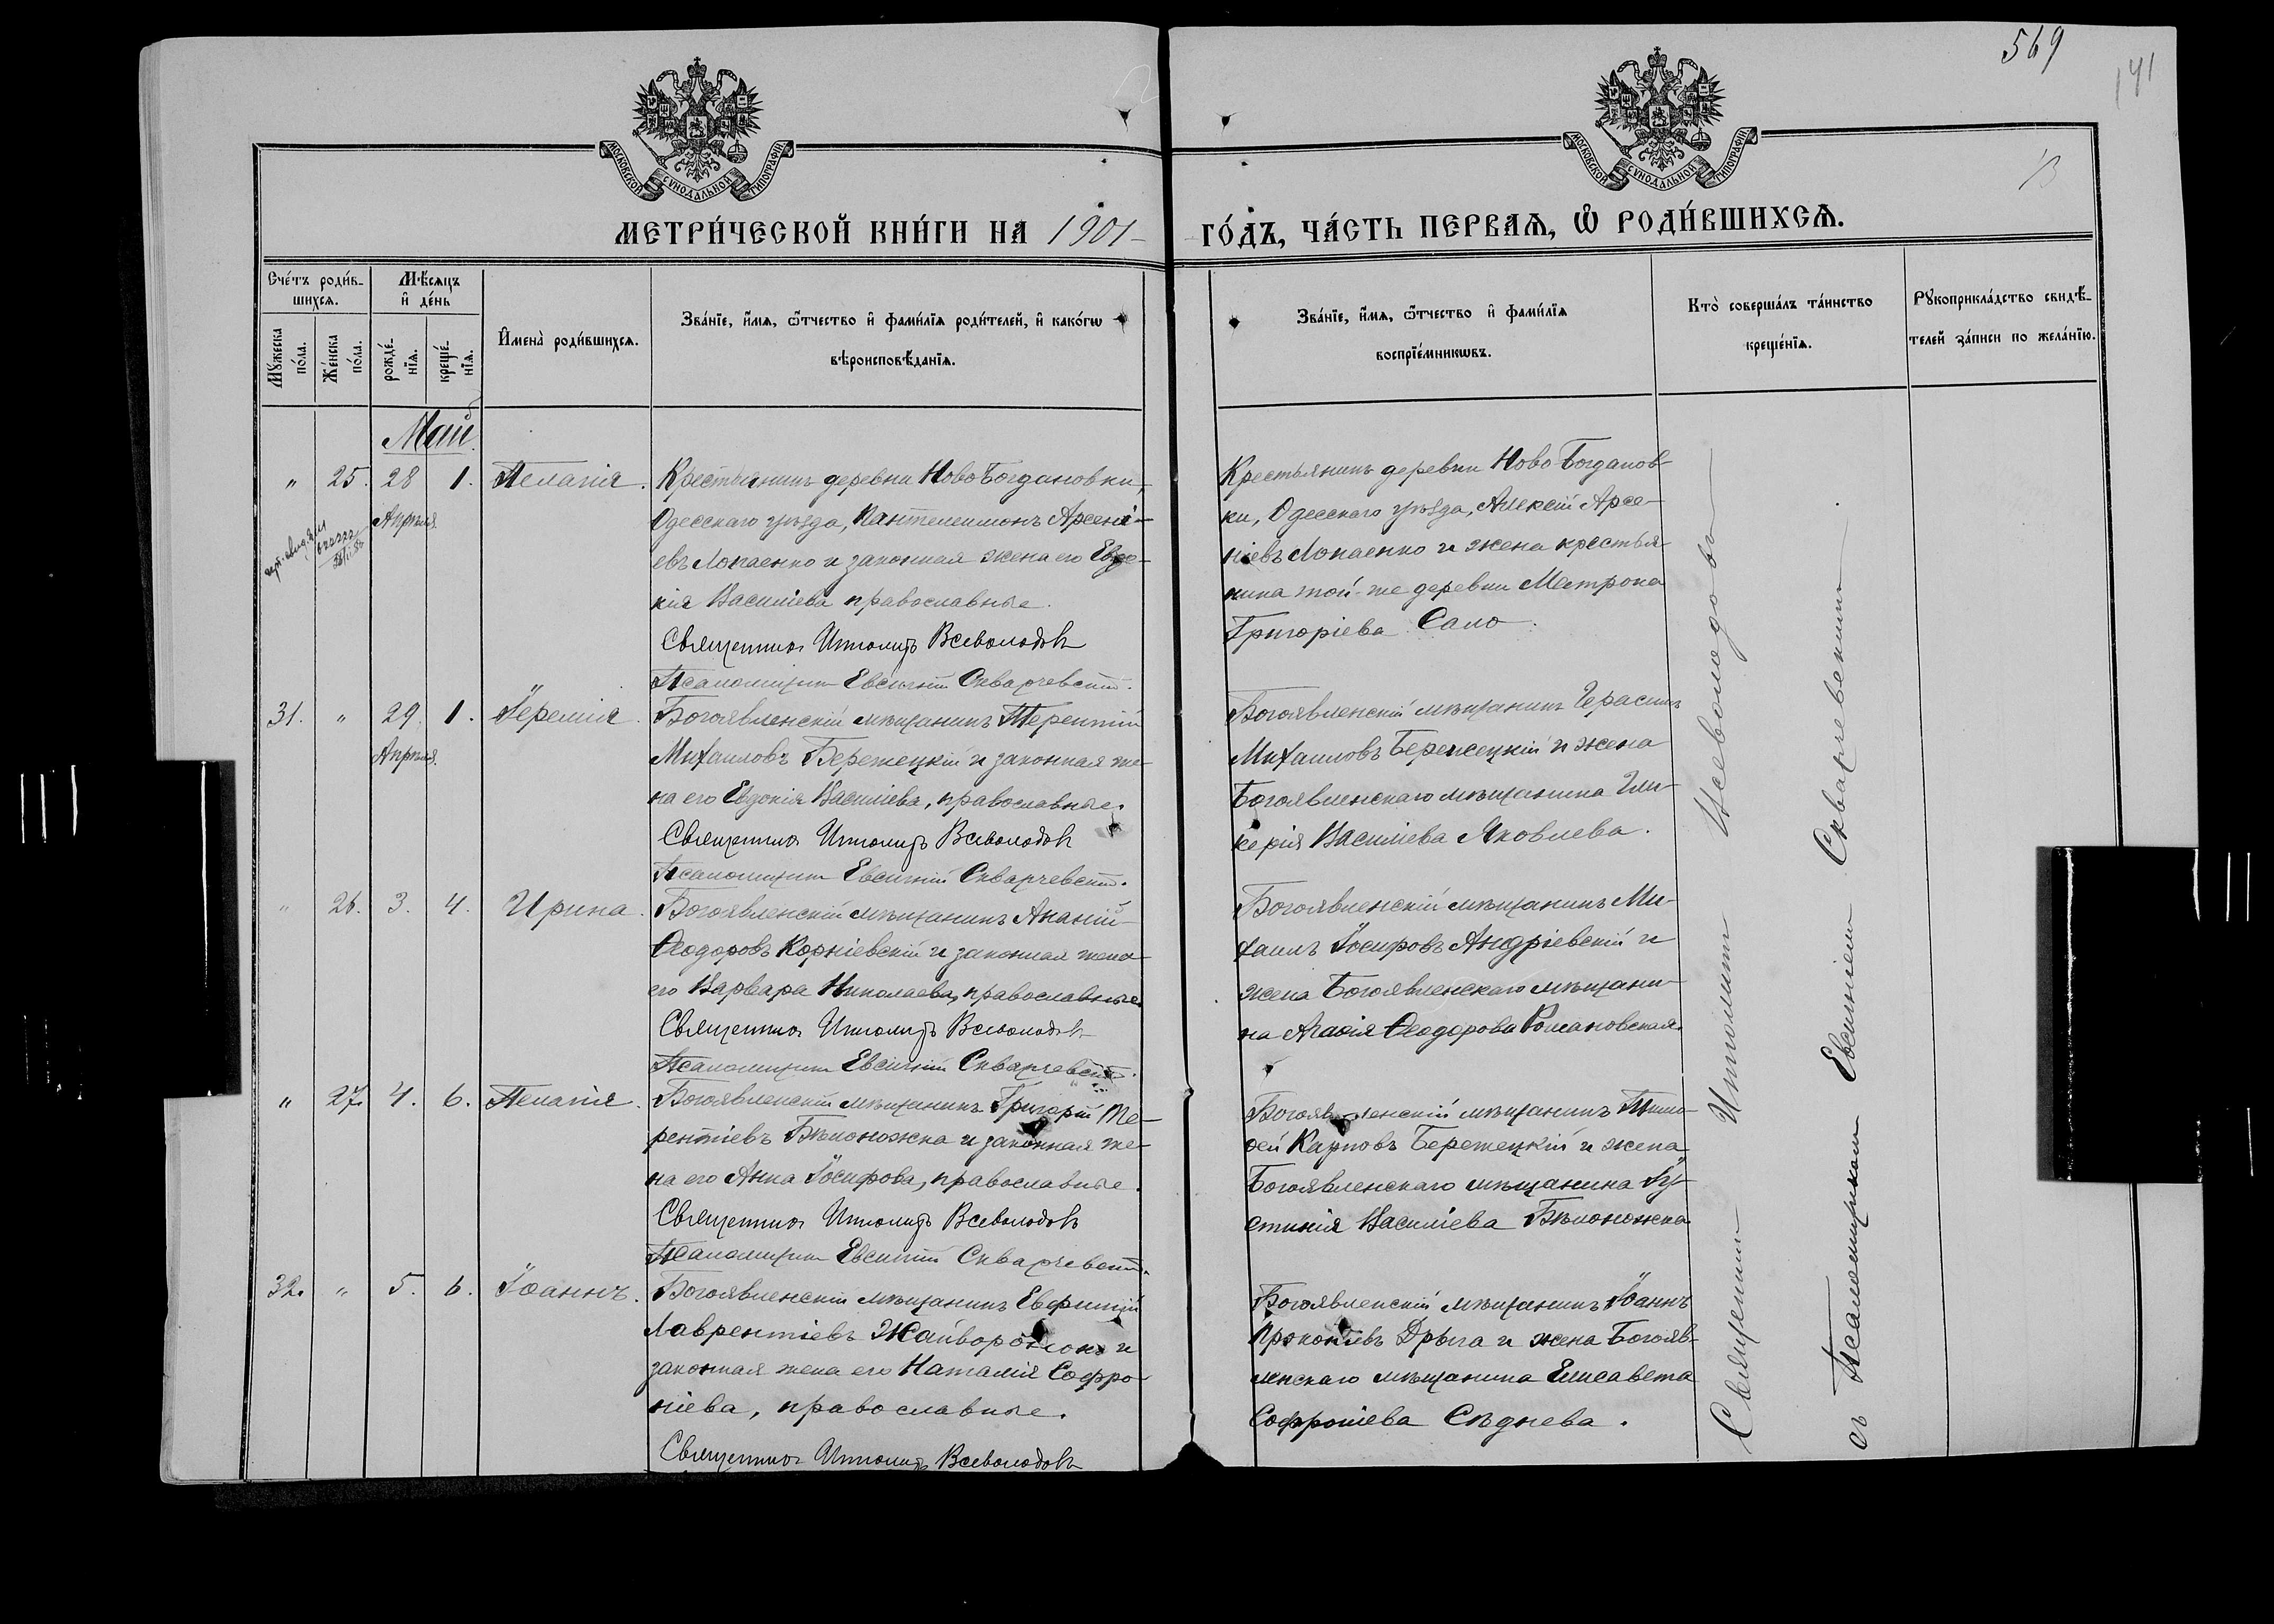 569
141
13
МОСКОВСКОЙ СѴНОДАЛЬНОЙ ТИПОГРАФІИ
МОСКОВСКОЙ СѴНОДАЛЬНОЙ ТИПОГРАФІИ
МЕТРИ́ЧЕСКОЙ КНИ́ГИ НА 1901
ГО́ДЪ, ЧА́СТЬ ПЕРВАѦ, Ѿ РОДИ́ВШИХСѦ.
Сче́тъ роди́в-
шихсѧ.
Мꙋ́жеска
по́ла.
Же́нска
по́ла.
Мѣ́сѧцъ
и҆ де́нь
рожде́-
нїѧ.
креще́-
нїѧ.
И҆мена̀ роди́вшихсѧ.
Зва́нїе, и҆́мѧ, ѻ҆́тчество и҆ фами́лїѧ роди́телей, и҆ како́гѡ
вѣроисповѣ́данїѧ.
Зва́нїе, и҆́мѧ, ѻ҆́тчество и҆ фами́лїѧ
воспрїе́мникѡвъ.
Кто̀ соверша́лъ та́инство
креще́нїѧ.
Рꙋкоприкла́дство свидѣ́-
телей за́писи по жела́нїю.
Май
" 25. 28 1. Пелагія.
Апрѣля
Крестьянинъ деревни Ново Богдановки,
Одесскаго уѣзда, Пантелеимонъ Арсені-
евъ Лопаенко и законная жена его Евдо-
кія Василіева православные.
Священникъ Ипполитъ Всеволодовъ
Псаломщикъ Евсигній Скварчевскій.
Крестьянинъ деревни Ново-Богданов-
ки, Одесскаго уѣзда, Алексій Арсе-
ніевъ Лопаенко и жена крестья-
нина той-же деревни Матрона
Григоріева Сало.
31. " 29. 1. Іеремія.
Апрѣля.
Богоявленскій мѣщанинъ Терентій
Михаиловъ Бережецкій и законная же-
на его Евдокія Василіева, православные.
Священникъ Ипполитъ Всеволодовъ
Псаломщикъ Евсигній Скварчевскій.
Богоявленскій мѣщанинъ Герасимъ
Михаиловъ Бережецкій и жена
Богоявленскаго мѣщанина Гли-
керія Василіева Яковлева.
" 26. 3. 4. Ирина.
Богоявленскій мѣщанинъ Ананій
Ѳеодоровъ Корніевскій и законная жена
его Варвара Николаева, православные
Священникъ Ипполитъ Всеволодовъ
Псаломщикъ Евсигній Скварчевскій.
Богоявленскій мѣщанинъ Ми-
хаилъ Іосифовъ Андріевскій и
жена Богоявленскаго мѣщани-
на Агаѳія Ѳеодорова Романовская.
" 27. 4. 6. Пелагія.
Богоявленскій мѣщанинъ Григорій Те-
рентіевъ Бѣлоножка и законная же-
на его Анна Іосифова, православные.
Священникъ Ипполитъ Всеволодовъ
Псаломщикъ Евсигній Скварчевскій.
Богоявленскій мѣщанинъ Тимо-
ѳей Карповъ Бережецкій и жена
Богоявленскаго мѣщанина Іу-
стинія Василіева Бѣлоножка
32. " 5. 6. Іоаннъ.
Богоявленскій мѣщанинъ Евфимій
Лаврентіевъ Жайворонокъ и
законная жена его Наталія Софро-
ніева, православные.
Священникъ Ипполитъ Всеволодовъ
Богоявленскій мѣщанинъ Іоаннъ
Прокопіевъ Дрыга и жена Богояв-
ленскаго мѣщанина Елисавета
Софроніева Сѣднева.
Священникъ Ипполитъ Всеволодовъ
съ Псаломщикомъ Евсигніемъ Скварчевскимъ.